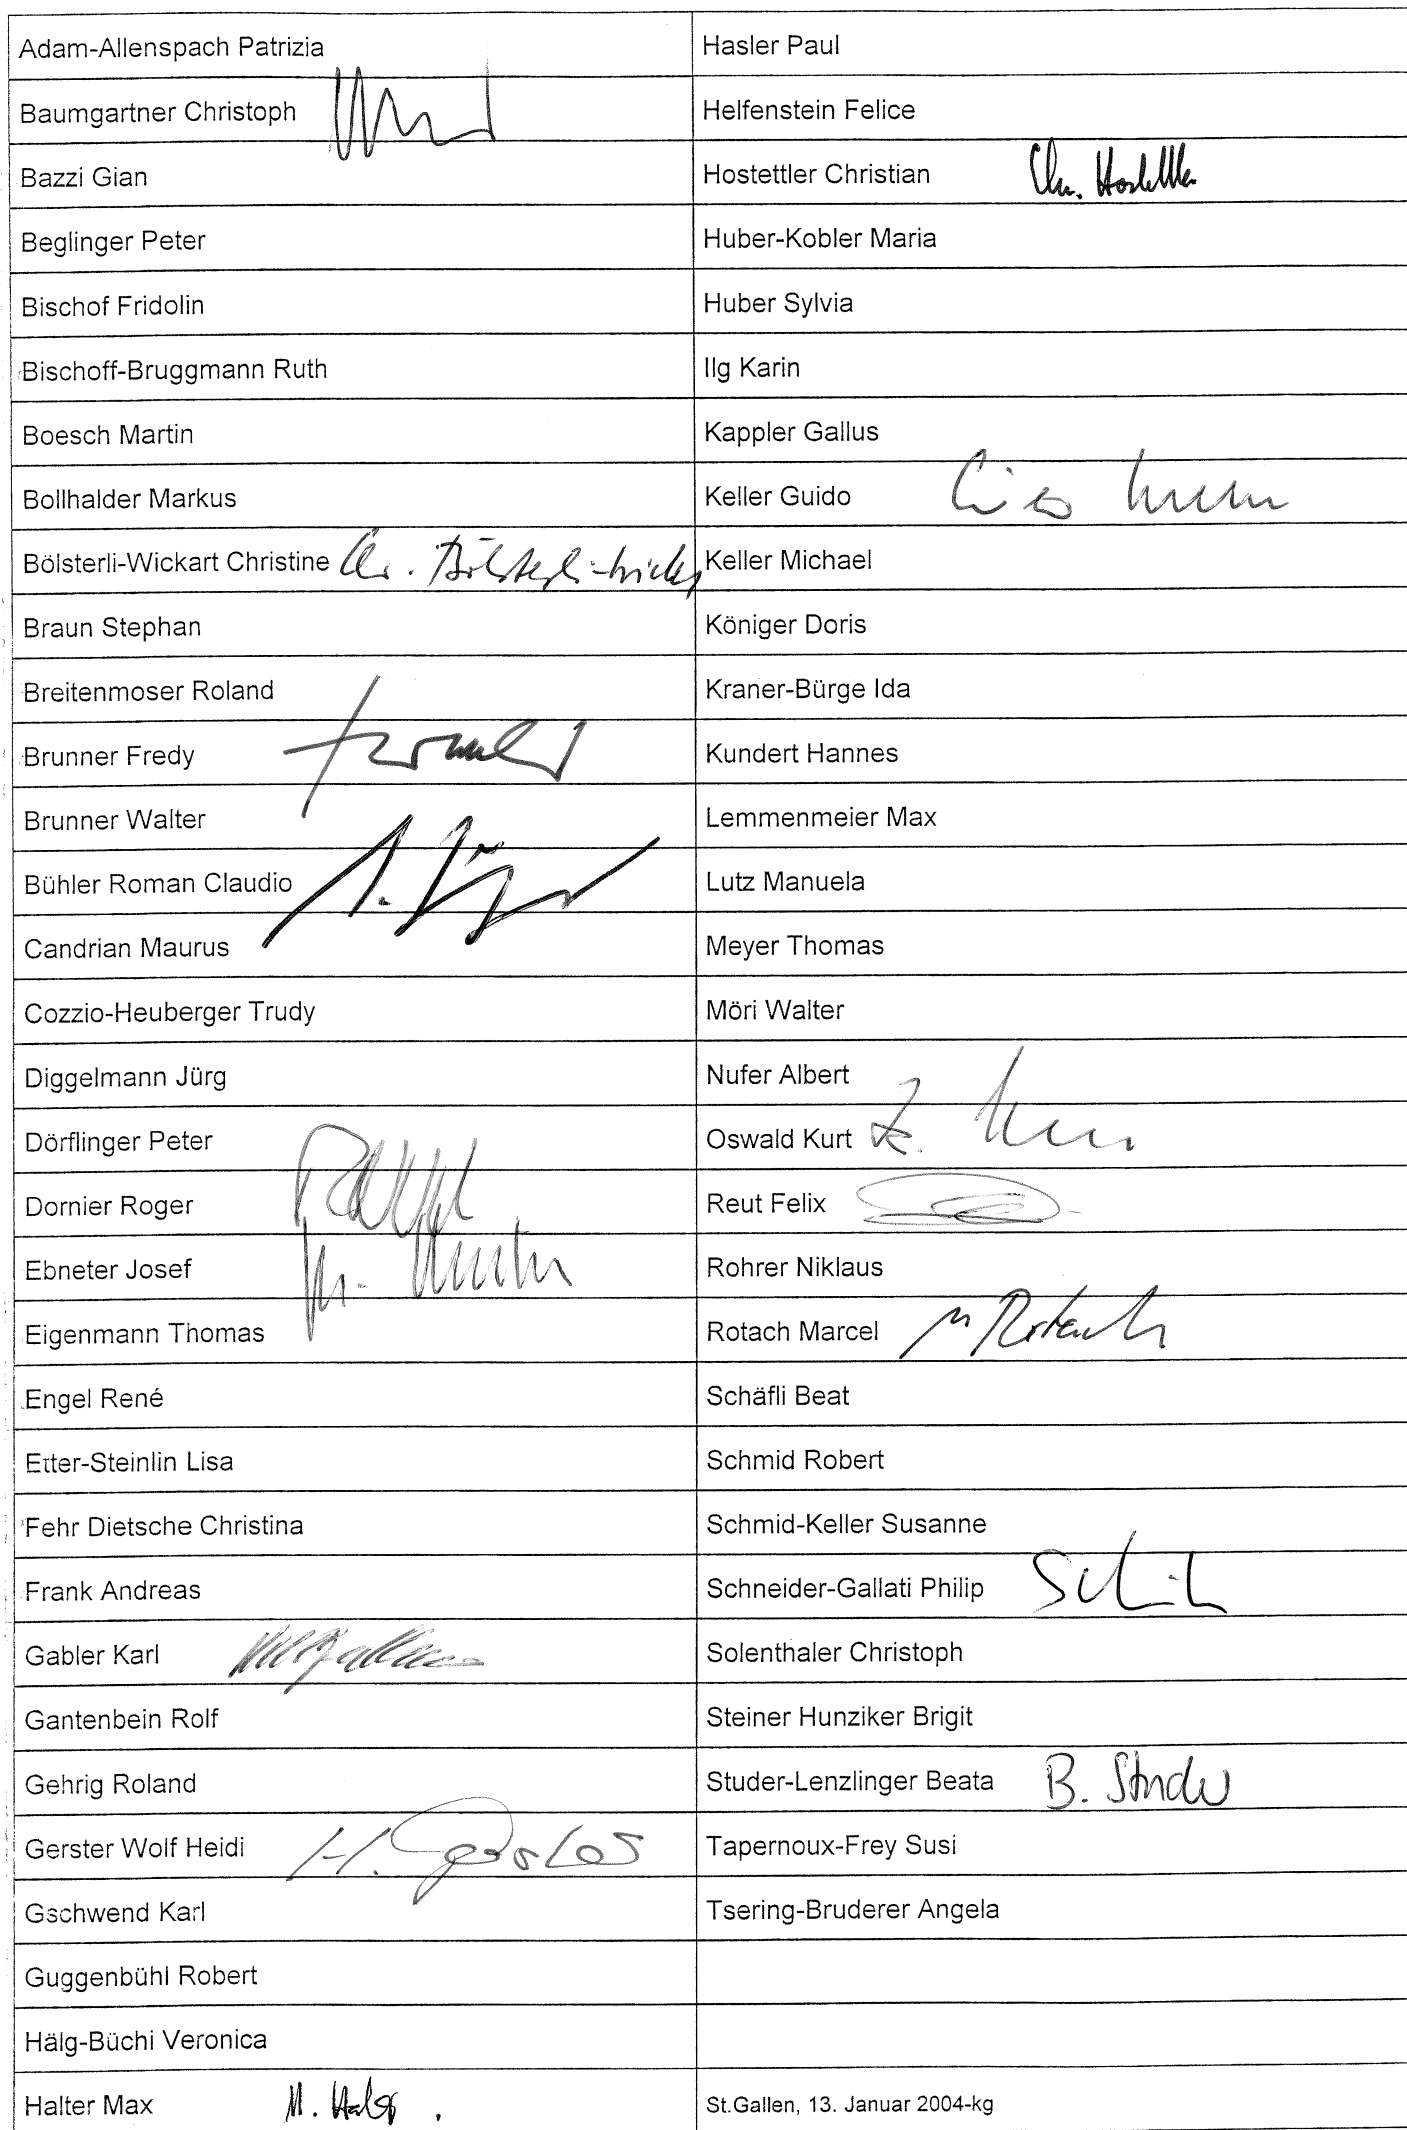 Adam-Allenspach Patrizia
Baumgartner Christoph
Bazzi Gian
Beglinger Peter
Bischof Fridolin
Bischoff-Bruggmann Ruth
Boesch Martin
Bollhalder Markus
Bölsterli-Wickart Christine Chr. Bölsterli-Wickart
Braun Stephan
Breitenmoser Roland
Brunner Fredy
Brunner Walter
Bühler Roman Claudio
Candrian Maurus
Cozzio-Heuberger Trudy
Diggelmann Jürg
Dörflinger Peter
Dornier Roger
Ebneter Josef
Eigenmann Thomas
Engel René
Etter-Steinlin Lisa
Fehr Dietsche Christina
Frank Andreas
Gabler Karl
Gantenbein Rolf
Gehrig Roland
Gerster Wolf Heidi H. Gerster
Gschwend Karl
Guggenbühl Robert
Hälg-Büchi Veronica
Halter Max M. Halter
Hasler Paul
Helfenstein Felice
Hostettler Christian Chr. Hostettler
Huber-Kobler Maria
Huber Sylvia
Ilg Karin
Kappler Gallus
Keller Guido
Keller Michael
Königer Doris
Kraner-Bürge Ida
Kundert Hannes
Lemmenmeier Max
Lutz Manuela
Meyer Thomas
Möri Walter
Nufer Albert
Oswald Kurt
Reut Felix
Rohrer Niklaus
Rotach Marcel M Rotach
Schäfli Beat
Schmid Robert
Schmid-Keller Susanne
Schneider-Gallati Philip
Solenthaler Christoph
Steiner Hunziker Brigit
Studer-Lenzlinger Beata B. Studer
Tapernoux-Frey Susi
Tsering-Bruderer Angela
St.Gallen, 13. Januar 2004-kg